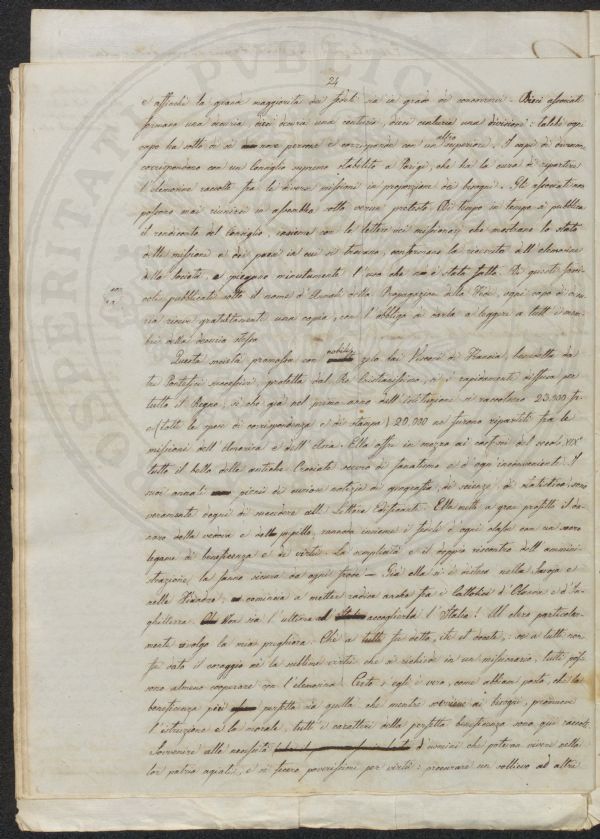 24
e affinchè la grande maggiorità dei fedeli sia in grado di concorrervi. Dieci associati
formano una decuria, dieci decurie una centuria, dieci centurie una divisione: talchè ogni
capo ha sotto di se nove persone e corrisponde con un altro superiore. I capi di divisione
corrispondono con un Consiglio supremo stabilito a Parigi, che ha la cura di ripartire
l'elemosine raccolte fra le diverse missioni in proporzione dei bisogni. Gli associati non
possono mai riunirsi in assemblea sotto verun pretesto. Di tempo in tempo si pubblica
il rendiconto del Consiglio, insieme con le lettere dei missionarj che mostrano lo stato
delle missioni e dei paesi in cui si trovano, confermano la ricevuta dell'elemosine
della Società, e spiegano minutamente l'uso che ne è stato fatto. Di questi fasci-
coli pubblicati sotto il nome d'Annali della Propagazione della Fede, ogni capo di decu-
ria riceve gratuitamente una copia, con l'obbligo di darla a leggere a tutti i mem-
bri della decuria stessa
Questa società promossa con nobile zelo dai Vescovi di Francia, benedetta da
tre Pontefici successivi, protetta dal Re Cristianissimo, si è rapidamente diffusa per
tutto il Regno, sì che già nel primo anno dell'istituzione si raccolsero 23.000 fr.
e (tolte le spese di corrispondenza e di stampa) 20.000 ne furono ripartiti fra le
missioni dell'America e dell'Asia. Ella offre in mezzo ai costumi del secolo XIX
tutto il bello delle antiche Crociate scevro di fanatismo e d'ogni inconveniente. I
suoi annali pieni di curiose notizie di geografia, di scienze, di statistica, sono
veramente degni di succedere alle Lettere Edificanti. Ella mette a gran profitto il da-
naro della vedova e del pupillo, rannoda insieme i fedeli d'ogni classe con un sacro
legame di beneficenza e di virtù. La semplicità e il doppio riscontro dell'ammini-
strazione, la fanno sicura da ogni frode — Già ella si è estesa nella Savoja e
nelle Fiandre, comincia a metter radice anche fra i Cattolici d'Olanda e d'In-
ghilterra. Non sia l'ultima ad accoglierla l'Italia! Al clero particolar-
mente rivolgo la mia preghiera. Chè a tutti fu detto, ite et docete: se a tutti non
fu dato il coraggio nè la sublime virtù che si richiede in un missionario, tutti pos-
sono almeno cooperare con l'elemosina. Certo se egli è vero, come abbiam posto, che la
beneficenza più perfetta sia quella che mentre sovviene ai bisogni, promuove
l'istruzione e la morale, tutti i caratteri della perfetta beneficenza sono qui raccolti
Sovvenire alle necessità d'uomini che potevan vivere nella
lor patria agiati, e si fecero poverissimi per virtù: procurare un sollievo ad altri